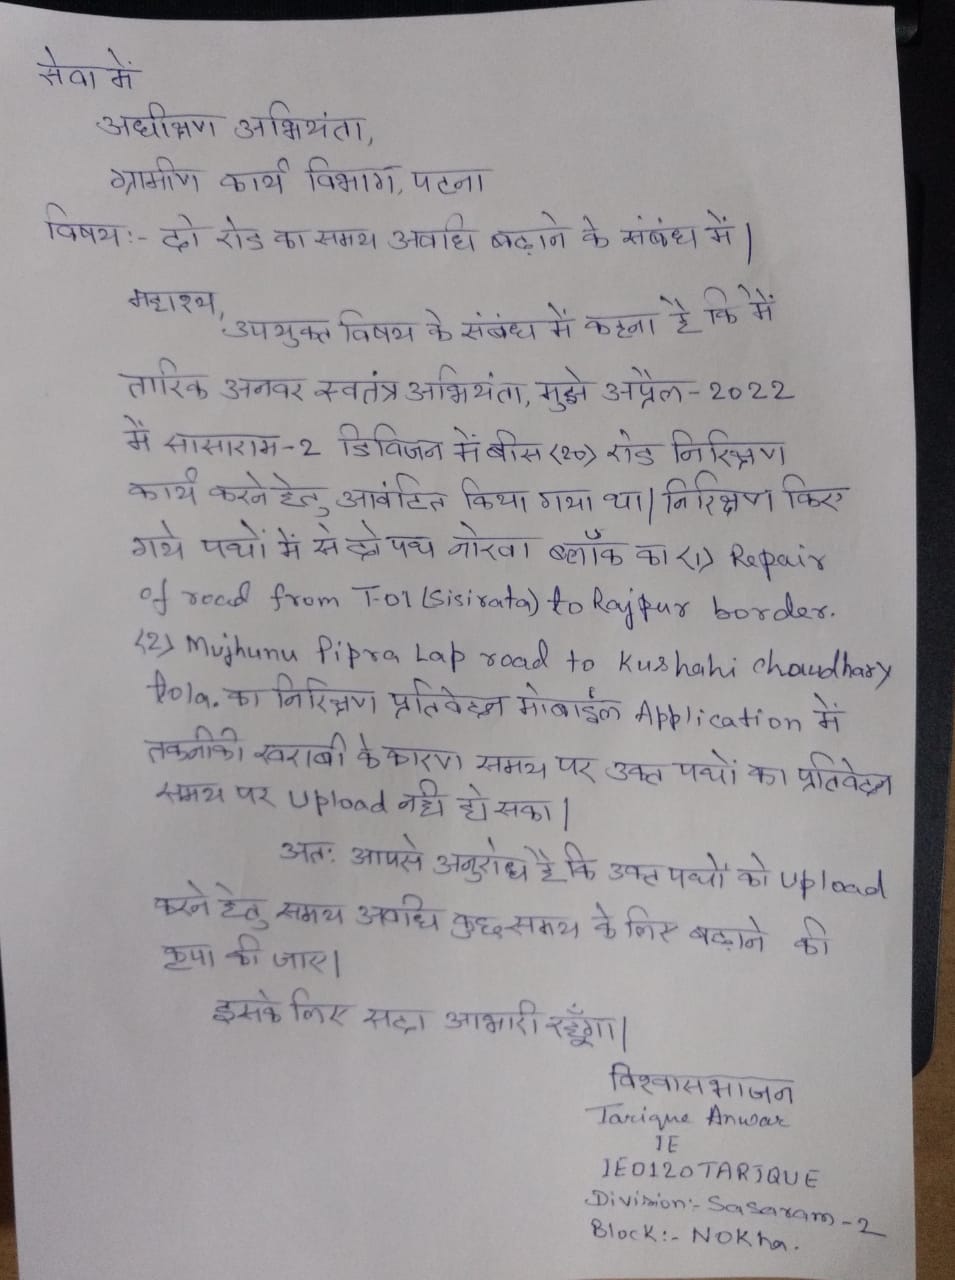 सेवा में
अधीक्षण अभियंता,
ग्रामीण कार्य विभाग, पटना
विषय:- दो रोड का समय अवधि बढ़ाने के संबंध में|
महाशय,
उपयुक्त विषय के संबंध में कहना है कि मैं
तारिक अनवर स्वतंत्र अभियंता, मुझे अप्रैल-2022
में सासाराम-2 डिविजन में बीस (20) रोड निरिक्षण
कार्य करने हेतु आवंटित किया गया था| निरिक्षण किए
गये पथों में से दो पथ नोखा ब्लॉक का (1) Repair
of road from T-01 (Sisirata) to Rajpur border.
(2) Mujhunu Pipra Lap road to Kushahi Chaudhary
tola. का निरिक्षण प्रतिवेदन मोबाईल Application में
तकनीकी खराबी के कारण समय पर उक्त पथों का प्रतिवेदन
समय पर Upload नही हो सका|
अत: आपसे अनुरोध है कि उक्त पथों को Upload
करने हेतु समय अवधि कुछ समय के लिए बढ़ाने की
कृपा की जाए|
इसके लिए सदा आभारी रहूँगा|
विश्वासभाजन
Tarique Anwar
IE
IE0120TARIQUE
Division:- Sasaram-2
Block:- Nokha.